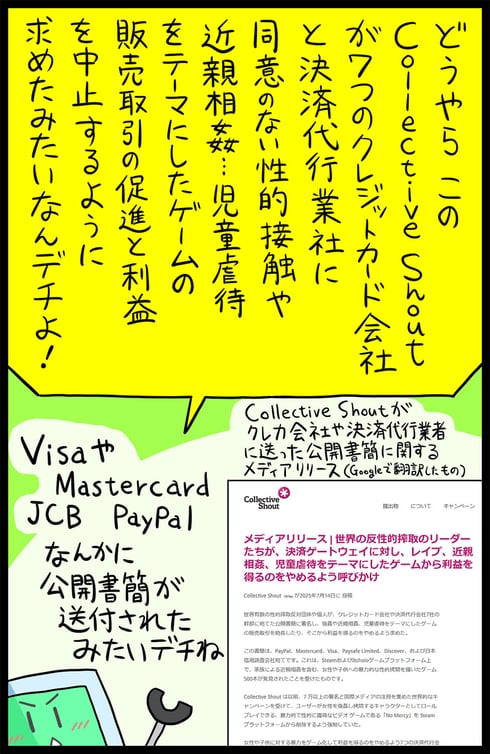 どうやら この
Collective Shout
が7つのクレジットカード会社
と決済代行業社に
同意のない性的接触や
近親相姦…児童虐待
をテーマにしたゲームの
販売取引の促進と利益
を中止するように
求めたみたいなんデチよ!
Collective Shoutが
クレカ会社や決済代行業者
に送った公開書簡に関する
メディアリリース(Googleで翻訳したもの)
Visaや
Mastercard
JCB PayPal
なんかに
公開書簡が
送付された
みたいデチね
Collective
Shout
提出物 について キャンペーン
メディアリリース | 世界の反性的搾取のリーダー
たちが、決済ゲートウェイに対し、レイプ、近親
相姦、児童虐待をテーマにしたゲームから利益を
得るのをやめるよう呼びかけ
Collective Shout が2025年7月14日に 投稿
世界有数の性的搾取反対団体や個人が、クレジットカード会社や決済代行会社7社の
幹部に宛てた公開書簡に署名し、強姦や近親相姦、児童虐待をテーマにしたゲーム
の販売取引を助長したり、そこから利益を得るのをやめるよう求めた。
この書簡は、PayPal、Mastercard、Visa、Paysafe Limited、Discover、および日本
信用調査会社宛てです。これは、SteamおよびItchioゲームプラットフォーム上
で、家族による近親相姦を含む、女性や子供への暴力的な性的拷問を描いたゲーム
500本が発見されたことを受けたものです。
Collective Shout は以前、7 万以上の署名と国際メディアの注目を集めた世界的なキ
ャンペーンを受けて、ユーザーが女性を強姦し拷問するキャラクターとしてロール
プレイできる、暴力的で性的に露骨なビデオ ゲームである「No Mercy」を Steam
プラットフォームから削除するよう強制していた。
女性や子供に対する暴力をゲーム化して利益を得るのをやめるよう7つの決済代行会